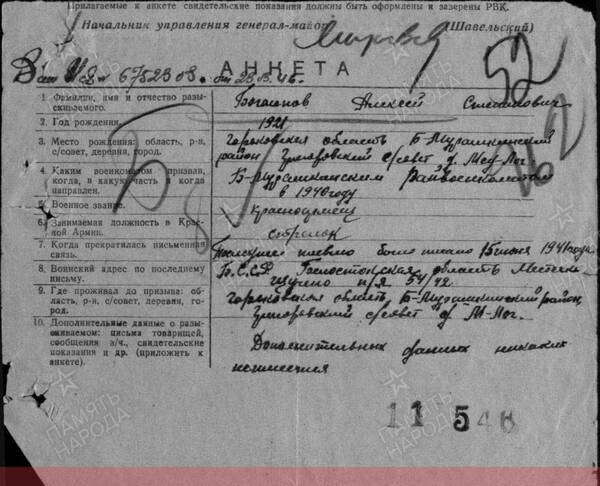 Прилагаемые к анкете свидетельские показания должны быть оформлены и заверены РВК.
Начальник управления генерал-майор (Шавельский)
52
62
АНКЕТА
1. Фамилия, имя и отчество разы-
скиваемого.
Алексей Степанович
2. Год рождения.
1921
3. Место рождения: область, р-н,
с/совет, деревня, город.
Горьковская область Б-Мурашкинский
район с/совет д.
4. Каким военкоматом призван,
когда, в какую часть и когда
направлен.
Б-Мурашкинским Райвоенкоматом
в 1940 году
5. Военное звание.
Красноармеец
6. Занимаемая должность в Крас-
ной Армии.
стрелок
7. Когда прекратилась письменная
связь.
Последнее письмо было писано 15 июня 1941 года
8. Воинский адрес по последнему
письму.
Б.С.С.Р. Белостокская область
п/я 54/42
9. Где проживал до призыва: об-
ласть, р-н, с/совет, деревня, го-
род.
Горьковская область, Б-Мурашкинский район,
с/совет д.
10. Дополнительные данные о разы-
скиваемом: письма товарищей,
сообщения в/ч., свидетельские
показания и др. (приложить к
анкете).
Дополнительных данных никаких
не имеется
11 546
ПАМЯТЬ
НАРОДА